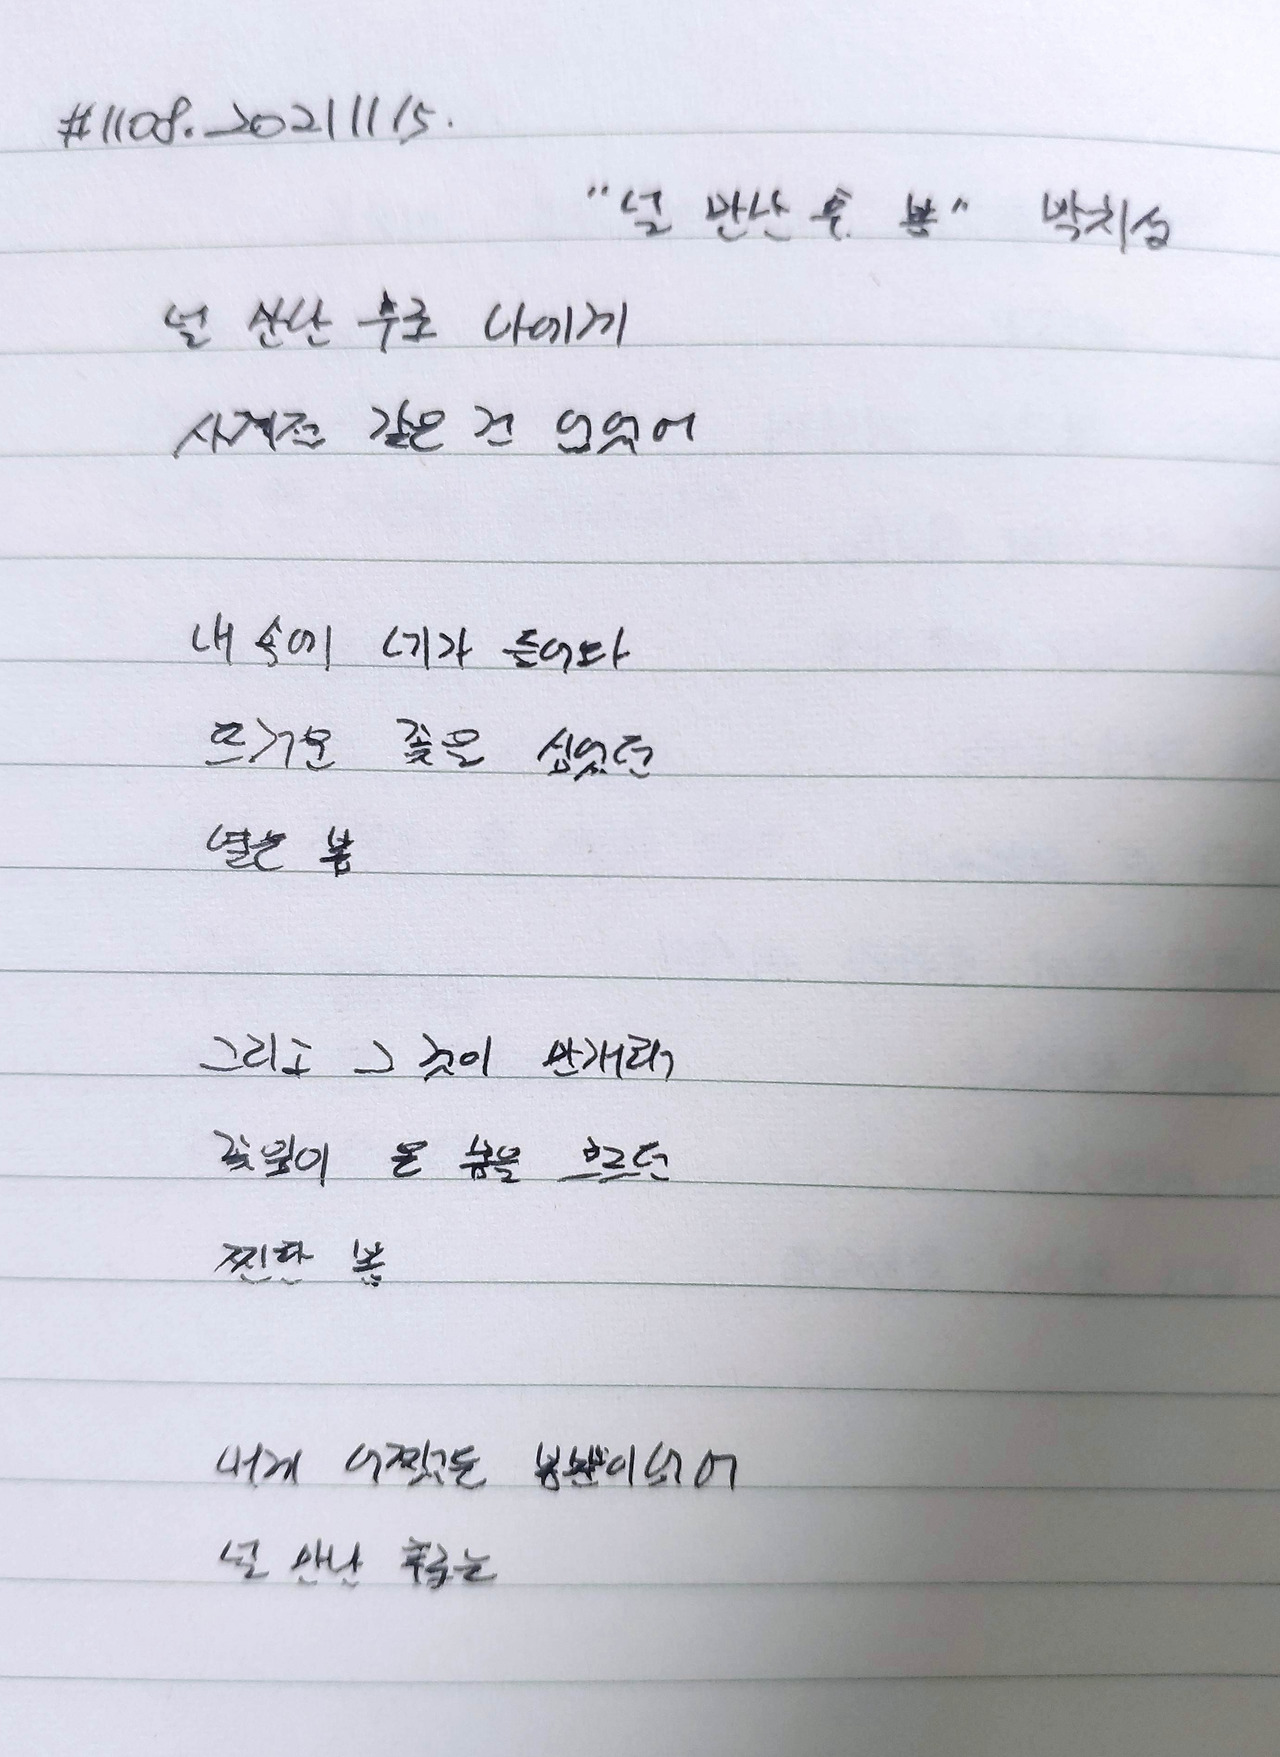 #1108. 20211115.
"널 만난 후 봄" 박치성
널 만난 후로 나에게
사계절 같은 건 없었어
내 속에 네가 들어와
뜨거운 꽃을 심었던
열은 봄
그리고 그 것이 만개해
꽃물이 온 몸을 흐르던
찐한 봄
내게 어쨌든 봄뿐이었어
널 만난 후로는